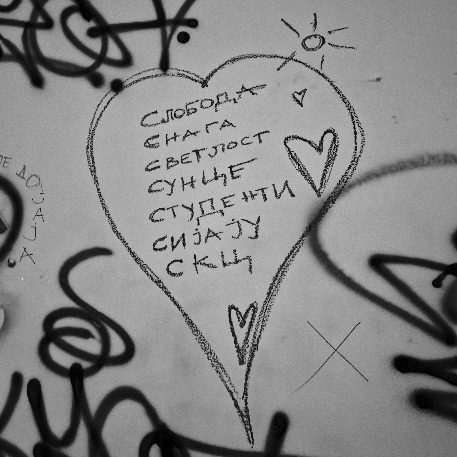 СЛОБОДА
СНАГА
СВЕТЛОСТ
СУНЦЕ
СТУДЕНТИ
СИЈАЈУ
СКЦ